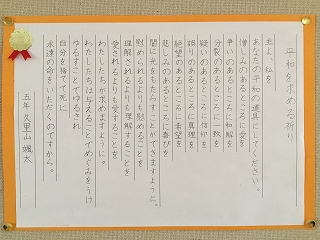 平和を求める祈り
主よ、私を
あなたの平和の道具にしてください。
憎しみのあるところに愛を
争いのあるところに和解を
分裂のあるところに一致を
疑いのあるところに信仰を
誤りのあるところに真理を
絶望のあるところに希望を
悲しみのあるところに喜びを
闇に光をもたらすことができますように。
慰められるよりも慰めることを
理解されるよりも理解することを
愛されるよりも愛することを
わたしたちが求めますように。
わたしたちは与えることでめぐみをうけ
ゆるすことでゆるされ
自分を捨てて死に
永遠の命をいただくのですから。
五年 久里山 颯太